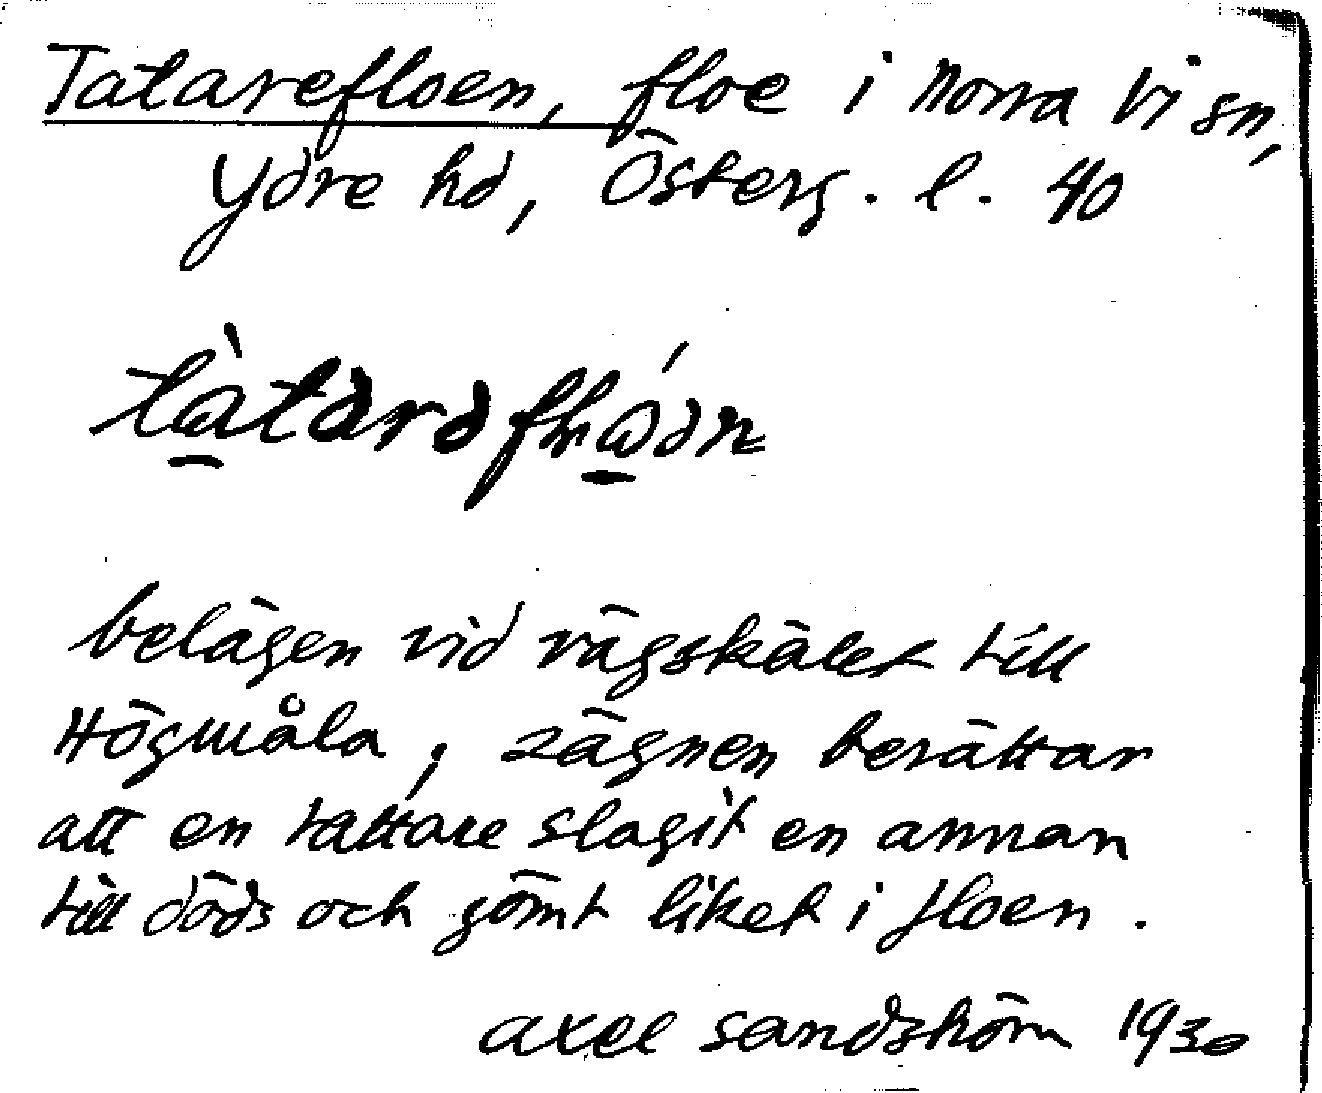 Tatarefloen, floe i Norra Vi sn,
Ydre hd, Österg. l. 40
belägen vid vägskälet till
Högmåla; sägnen berättar
att en tattare slagit en annan
till döds och gömt liket i floen.
Axel Sandström 1930